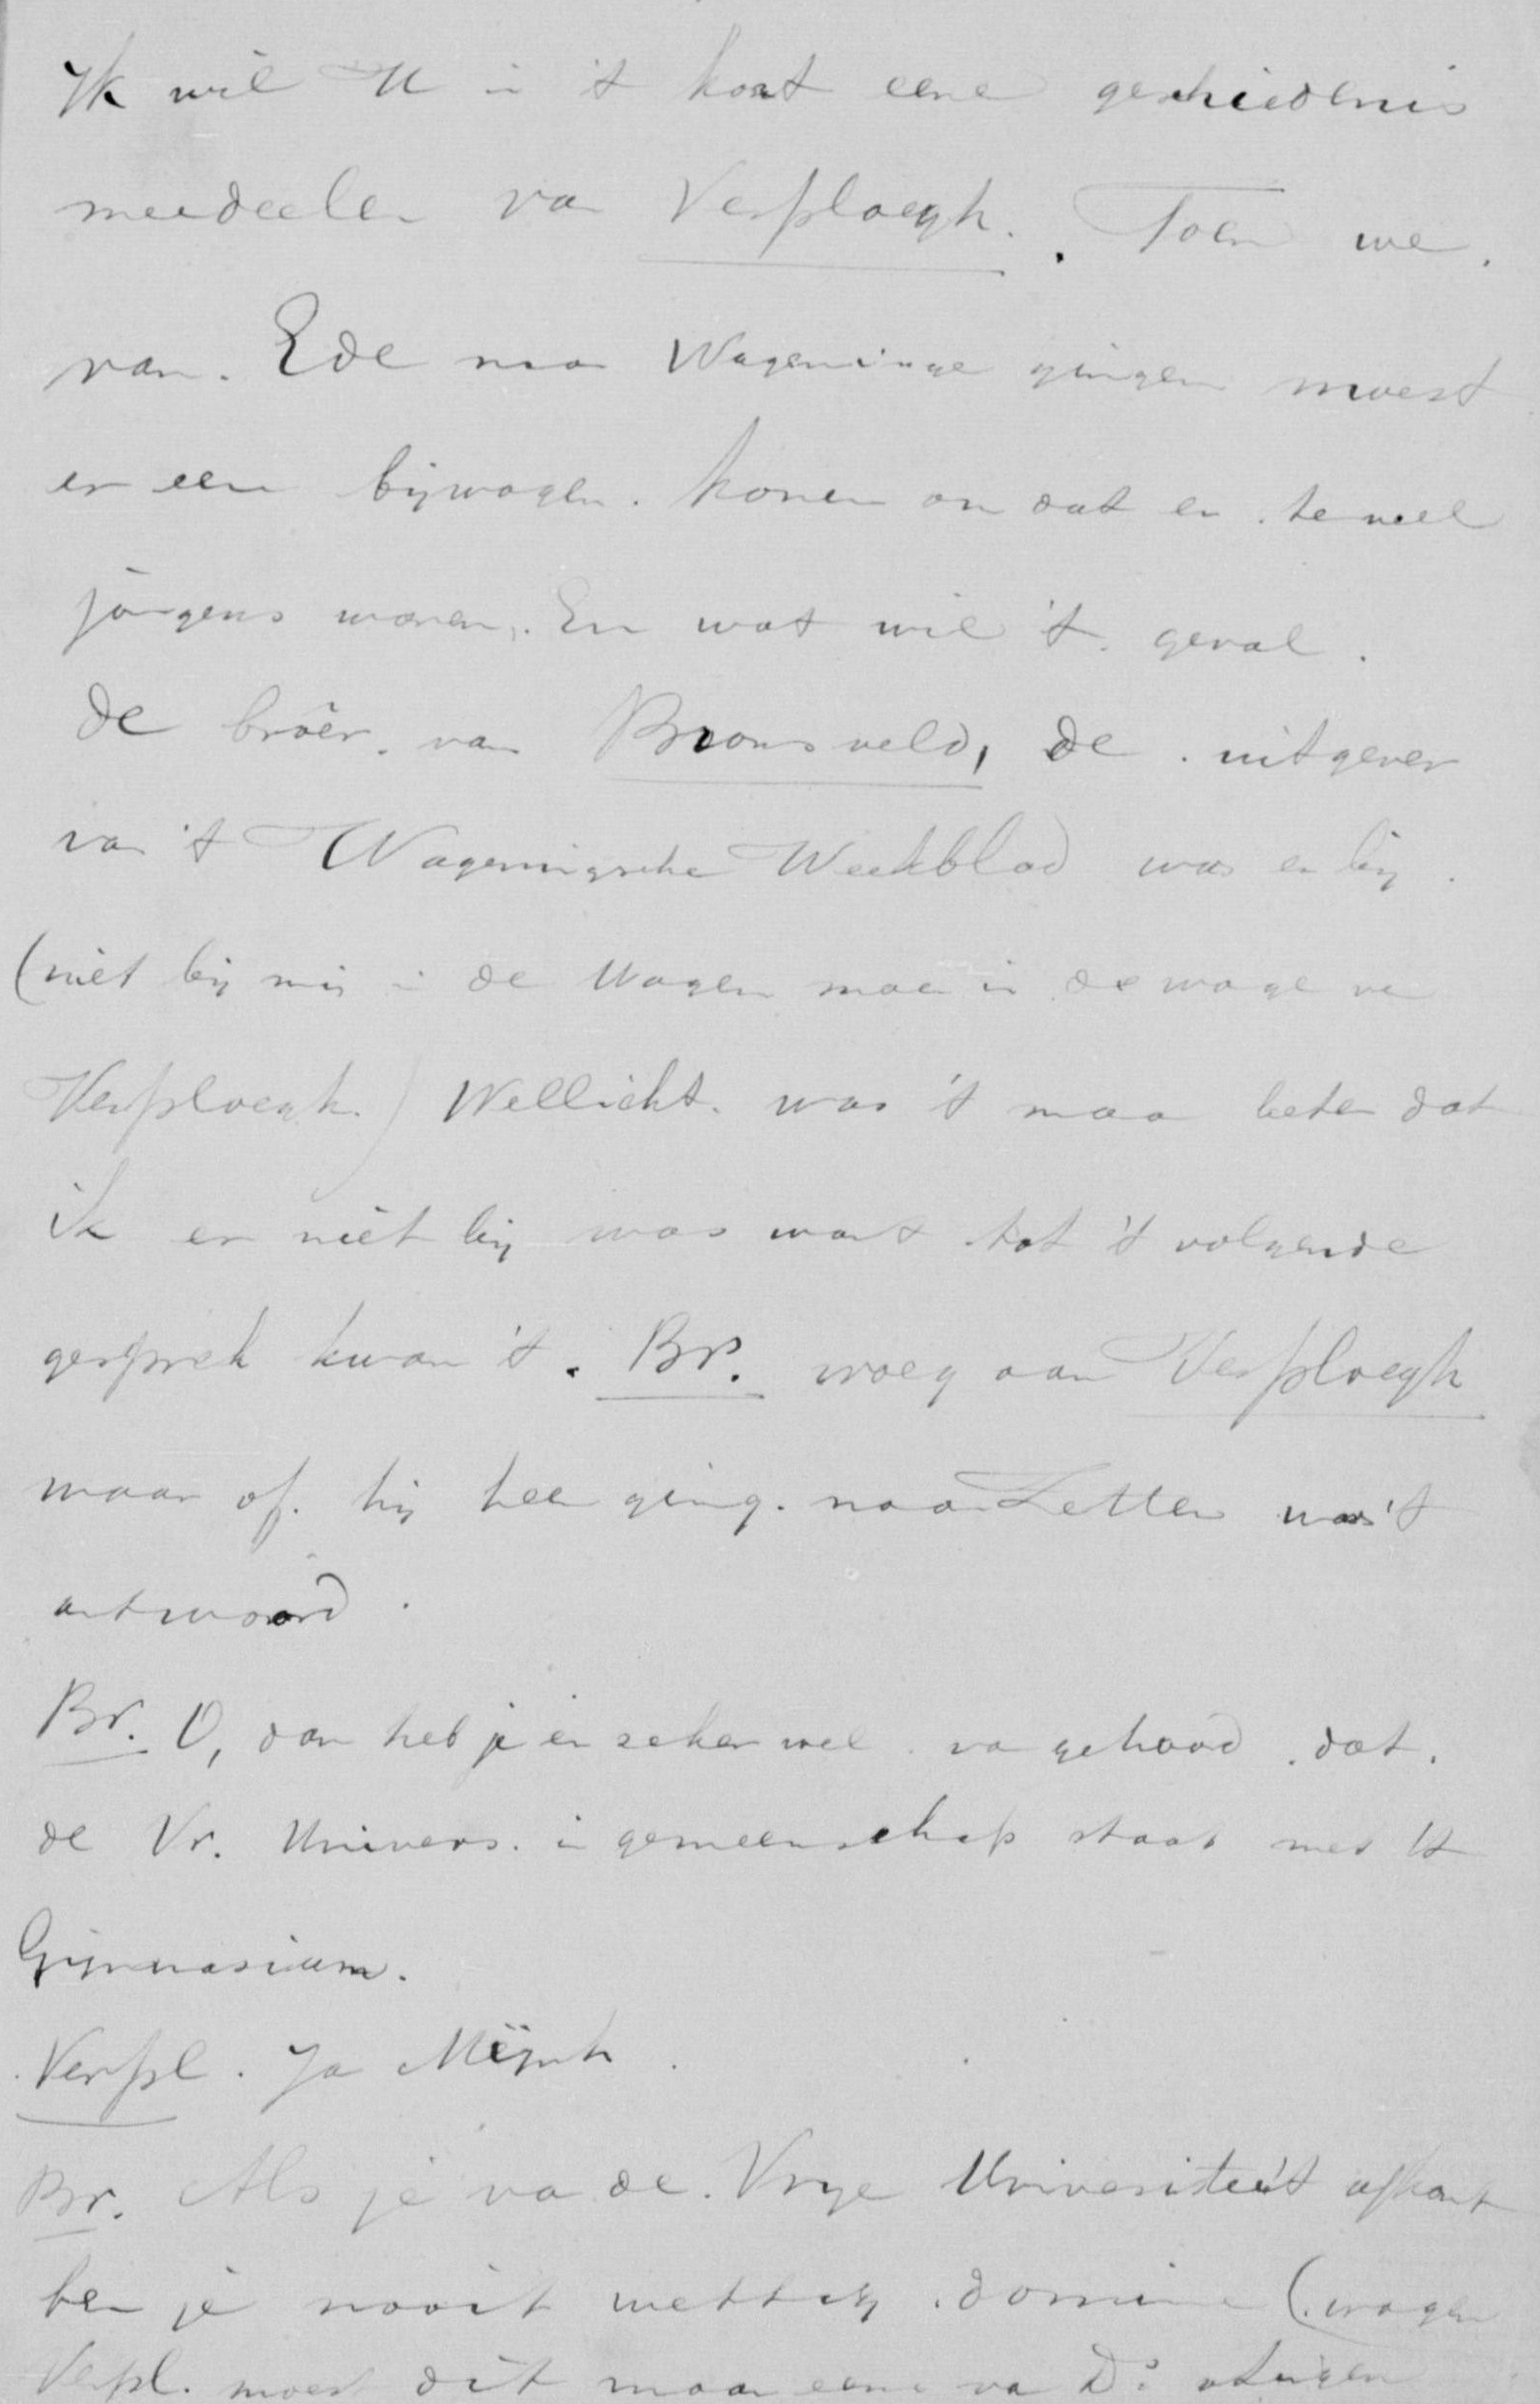 Ik wil U in 't kort eene geschiedenis
meedeelen van Verploegh. Toen we
van Ede naar Wageningen gingen moest
er een bijwagen komen omdat er te veel
jongens waren. En wat wil 't geval.
De broêr van Bronsveld, de uitgever
van 't Wageningsche Weekblad was er bij.
(niet bij mij in de wagen maar in de wagen van
Verploegh.) Wellicht was 't maar beter dat
ik er niet bij was want tot 't volgende
gesprek kwam 't. Br. vroeg aan Verploegh
waar of hij heen ging. naar Zetten was 't
antwoord.
Br. O, dan heb je er zeker wel van gehoord dat
de Vr. Univers. in gemeenschap staat met 't
Gymnasium.
Verpl. Ja Mijnh.
Br. Als je van de Vrije Universiteit afkomt
ben je nooit wettig dominé (vragen
Verpl. moest dit maar eens van Ds.